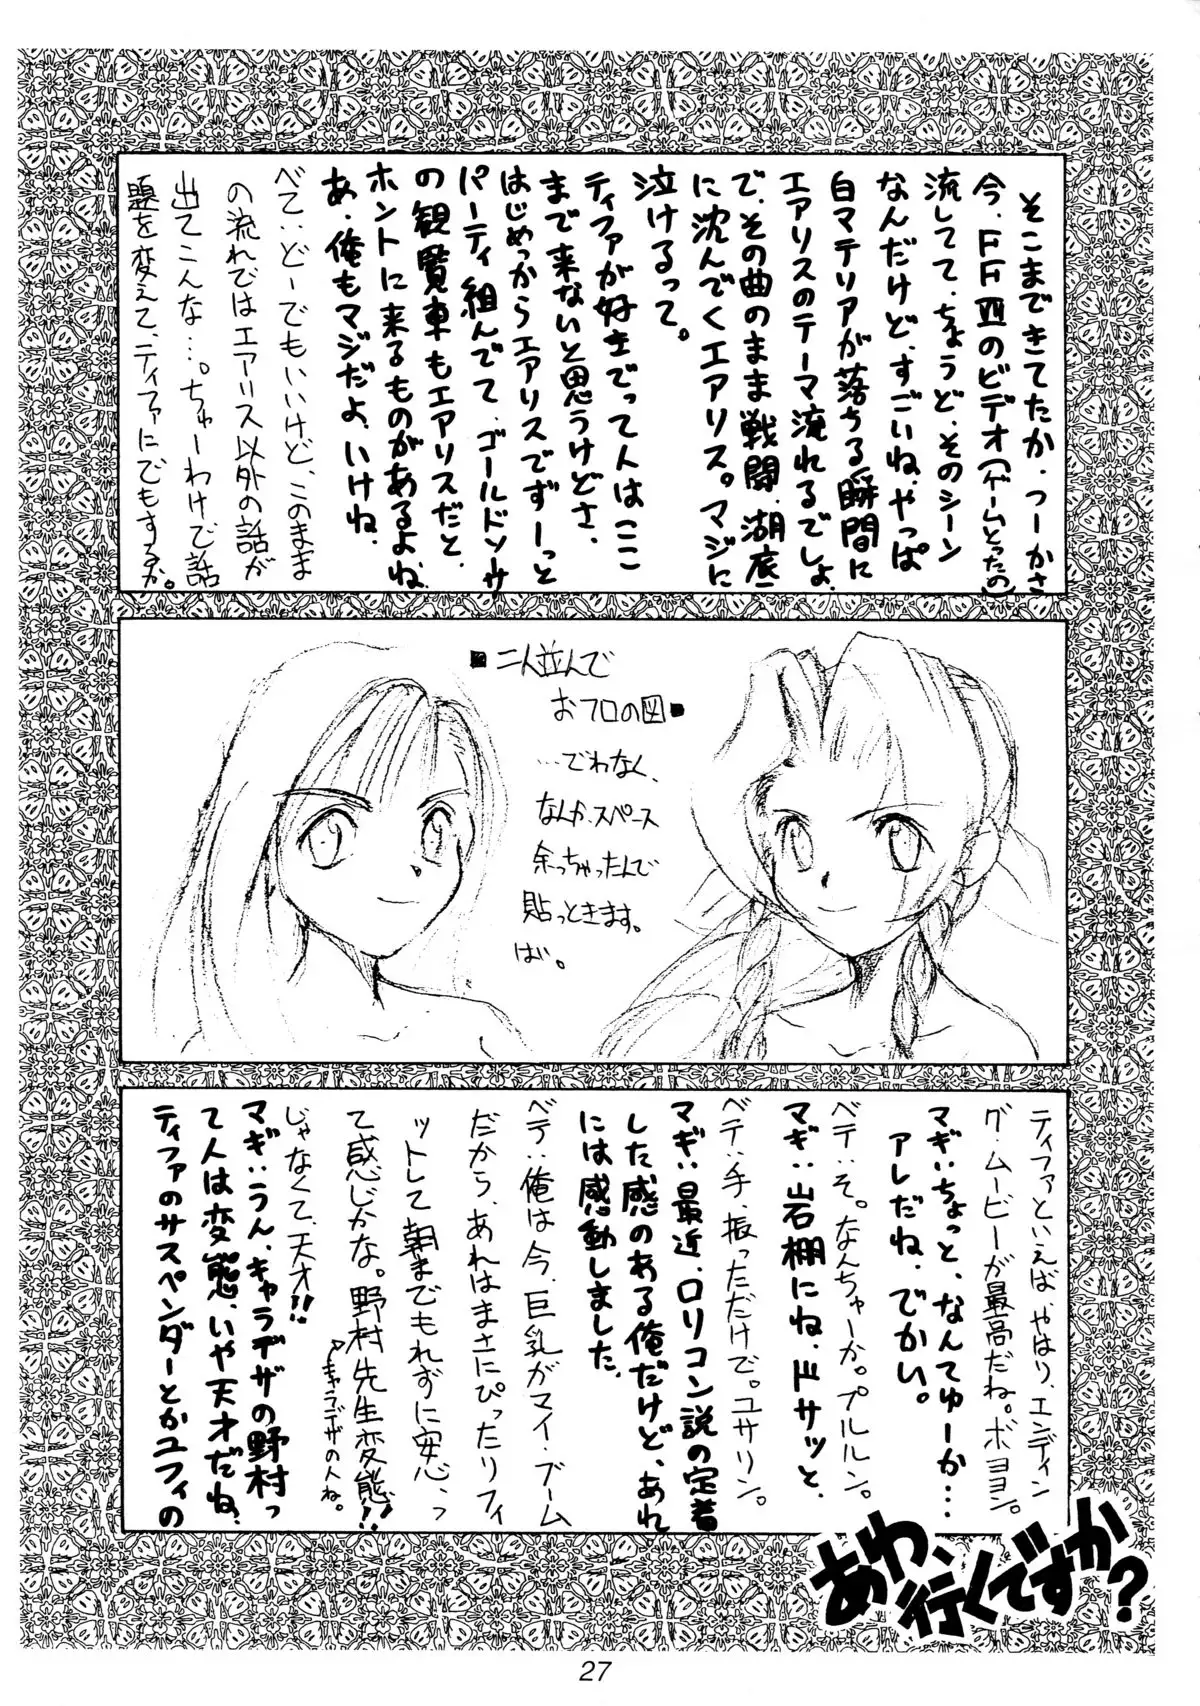 そこまできてたか。つーかさ
今、FFⅦのビデオ(ゲームとったの)
流してて、ちょうど、そのシーン
なんだけど、すごいね、やっぱ
白マテリアが落ちる瞬間に
エアリスのテーマ流れるでしょ、
で、その曲のまま戦闘、湖底
に沈んでくエアリス。マジに
泣けるって。
ティファが好きでって人はここ
まで来ないと思うけどさ、
はじめっからエアリスでずーっと
パーティ組んでて、ゴールドソーサ
の観覧車もエアリスだと
ホントに来るものがあるよね、
あ、俺もマジだよ、いけね、
べて:どーでもいいけど、このまま
の流れではエアリス以外の話が
出てこんな…。ちゅーわけで話
題を変えて、ティファにでもするか。
■二人並んで
おフロの図■
…でわなく、
なんか、スペース
余っちゃったんで
貼っときます。
ばい。
ティファといえばやはり、エンディン
グ・ムービーが最高だね。ボヨヨン。
マギ:ちょっと、なんてゅーか…
アレだね、でかい。
ベテ:そ。なんちゃーか。プルルン。
マギ:岩棚にね、ドサッと、
ベテ:手、振っただけで。ユサリン。
マギ:最近、ロリコン説の定着
した感のある俺だけど、あれ
には感動しました。
ベテ:俺は今、巨乳がマイ・ブーム
だから、あれはまさにぴったりフィ
ットして朝までもれずに安心、っ
て感じかな。野村先生変態!!
↑キャラデザの人ね。
じゃなくて、天才!!
マギ:うん、キャラデザの野村っ
て人は変態、いや天才だね、
ティファのサスペンダーとかユフィの
あわ、行くですか?
27